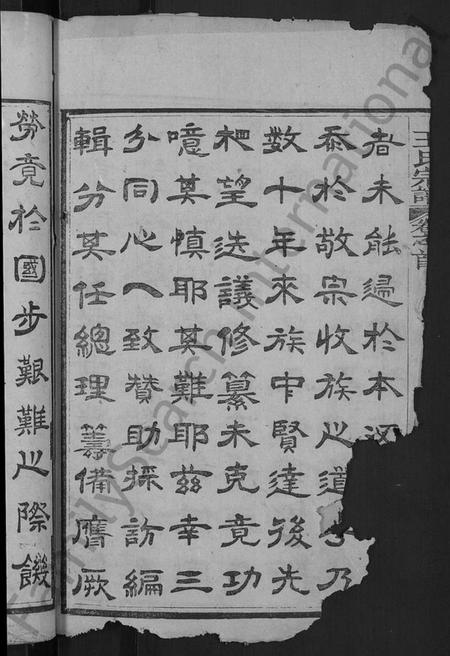 王氏宗譜 卷之首
者未能遍於本
忝於敬宗收族之道
乃
數十年來族中賢達後先
耙望迭議修纂未克竟功
噫其慎耶其難耶茲幸三
分同心一致贊助採訪編
輯分其任總理籌備膺厥
勞竟於國步艱難之際饑
FamilySearch International